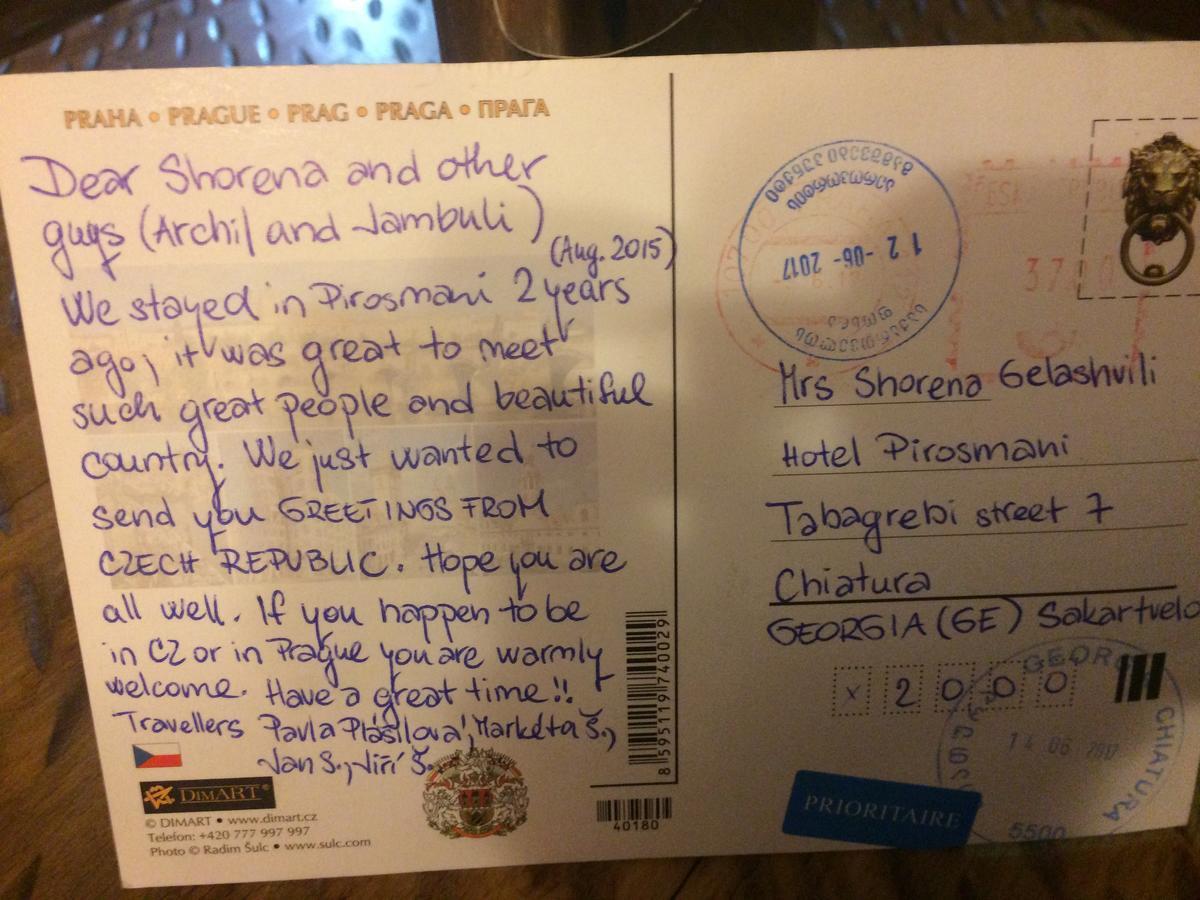 PRAHA • PRAGUE • PRAG • PRAGA • ПРАГА
Dear Shorena and other
guys (Archil and Jambuli)
(Aug. 2015)
We stayed in Pirosmani 2 years
ago; it was great to meet
such great people and beautiful
country. We just wanted to
send you GREETINGS FROM
CZECH REPUBLIC. Hope you are
all well. If you happen to be
in CZ or in Prague you are warmly
welcome. Have a great time!!
Travellers Pavla Plášilová, Markéta Š.,
Jan S., Jiří Š.
DIMART
© DIMART • www.dimart.cz
Telefon: +420 777 997 997
Photo © Radim Šulc • www.sulc.com
8 595119 740029
40180
12 -06- 2017
Mrs Shorena Gelashvili
Hotel Pirosmani
Tabagrebi street 7
Chiatura
GEORGIA (GE) Sakartvelo
x 2000
GEOR
CHIATURA
14 06 2017
5500
PRIORITAIRE